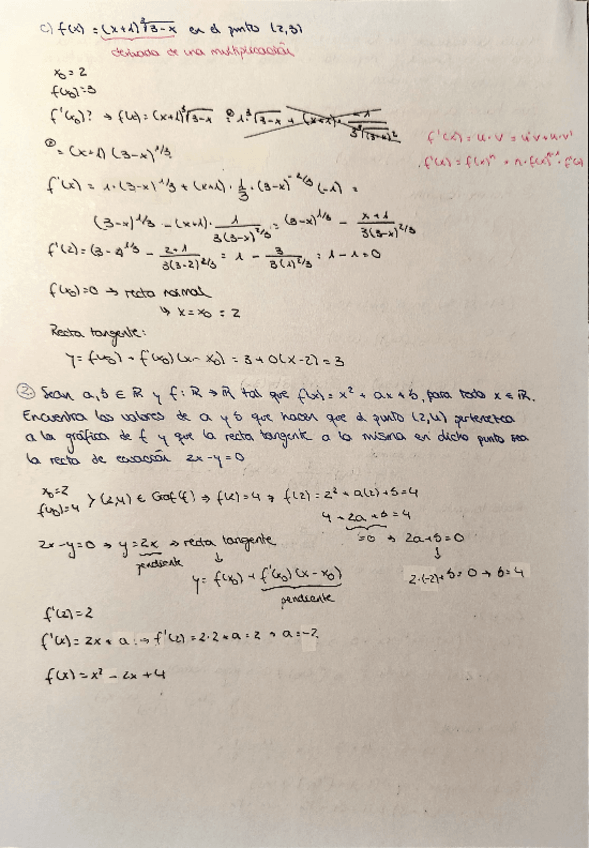 c) f(x) = (x+1)∛3-x en el punto (2,3)
derivada de una multiplicación
x₀ = 2
f(x₀) = 3
f'(x₀)? → f(x) = (x+1)∛3-x = 1·∛3-x + (x+1)·
= (x+1) (3-x)^1/3
f'(x) = u·v = u'v+u·v'
f'(x) = f(x)ⁿ = n·f(x)ⁿ⁻¹·f'(x)
f'(x) = 1·(3-x)^1/3 + (x+1)·1/3·(3-x)^-2/3(-1) =
(3-x)^1/3 - (x+1)·1/3(3-x)^2/3 = (3-x)^1/3 - x+1/3(3-x)^2/3
f'(2) = (3-2)^1/3 - 2+1/3(3-2)^2/3 = 1 - 3/3(1)^2/3 = 1-1=0
f'(x₀)=0 → recta normal
↳ x = x₀ = 2
Recta tangente:
y = f(x₀) + f'(x₀)(x-x₀) = 3+0(x-2) = 3
② Sean a, b ∈ ℝ y f: ℝ → ℝ tal que f(x) = x² + ax + b, para todo x ∈ ℝ.
Encuentra los valores de a y b que hacen que el punto (2,4) pertenezca
a la gráfica de f y que la recta tangente a la misma en dicho punto sea
la recta de ecuación 2x-y=0
x₀=2
f(x₀)=4 } (2,4) ∈ Graf(f) → f(2) = 4 → f(2) = 2² + a(2) + b = 4
4 + 2a + b = 4
=0 → 2a+b=0
2x-y=0 → y = 2x → recta tangente
pendiente
y = f(x₀) + f'(x₀)(x-x₀)
pendiente
2·(-2)+b=0 → b=4
f'(2) = 2
f'(x) = 2x + a → f'(2) = 2·2 + a = 2 → a=-2
f(x) = x² - 2x + 4